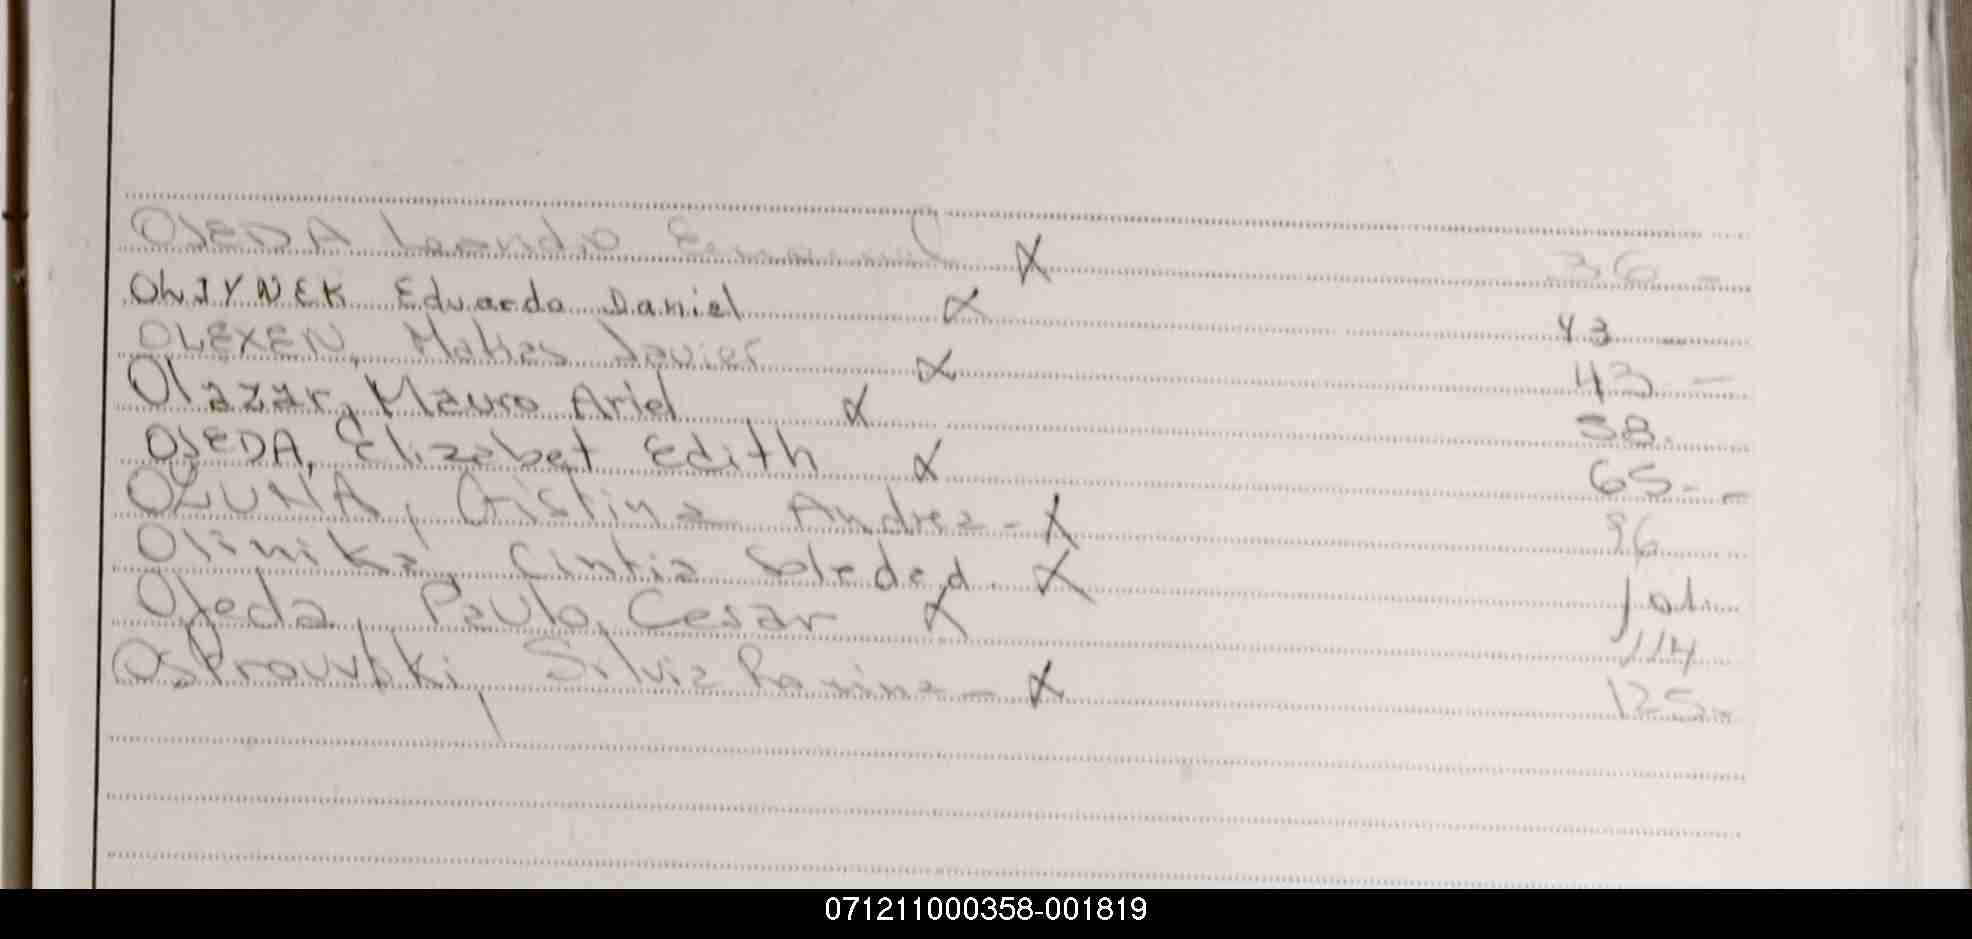 OJEDA Leandro Emanuel X 36 -
OLIJYNEK Eduardo Daniel X 43 -
OLEXEN, Matias Javier X 43 -
Olazar, Mauro Ariel X 58.
OJEDA, Elizabet Edith X 65 - -
OLUNA, Cristina Andrea - X 96
Olinika, Cintia Soledad. X 101.
Ojeda, Paulo Cesar X 114
Silvia Romina - X 125 -
071211000358-001819